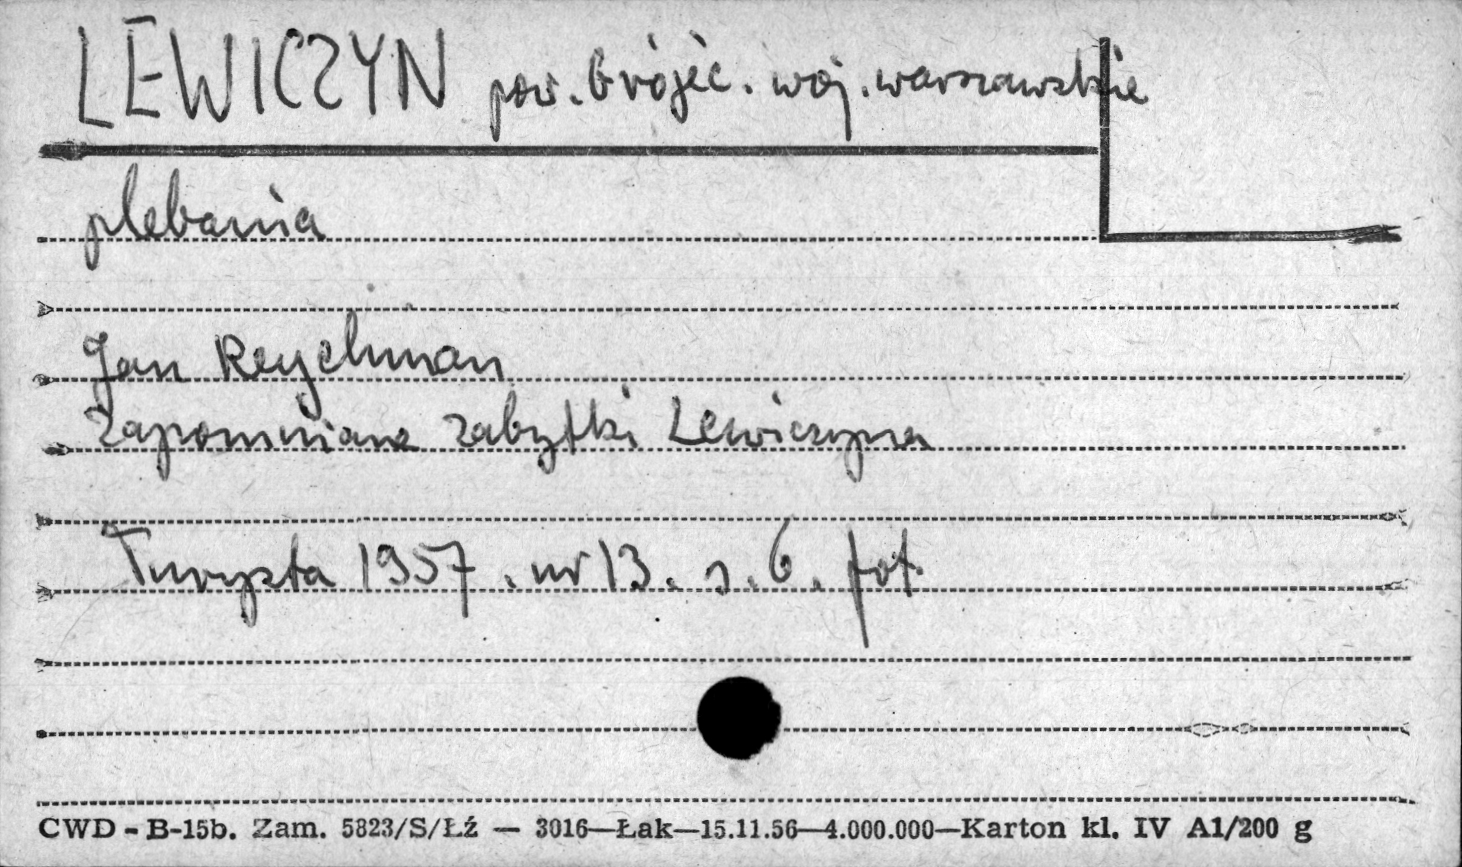 LEWICZYN pow. Grójec. woj. warszawskie
plebania
Jan Reychman
Zapomniane zabytki Lewiczyna
Turysta 1957. nr 13. s. 6. fot.
CWD - B-15b. Zam. 5823/S/Łź — 3016—Łak—15.11.56—4.000.000—Karton kl. IV A1/200 g